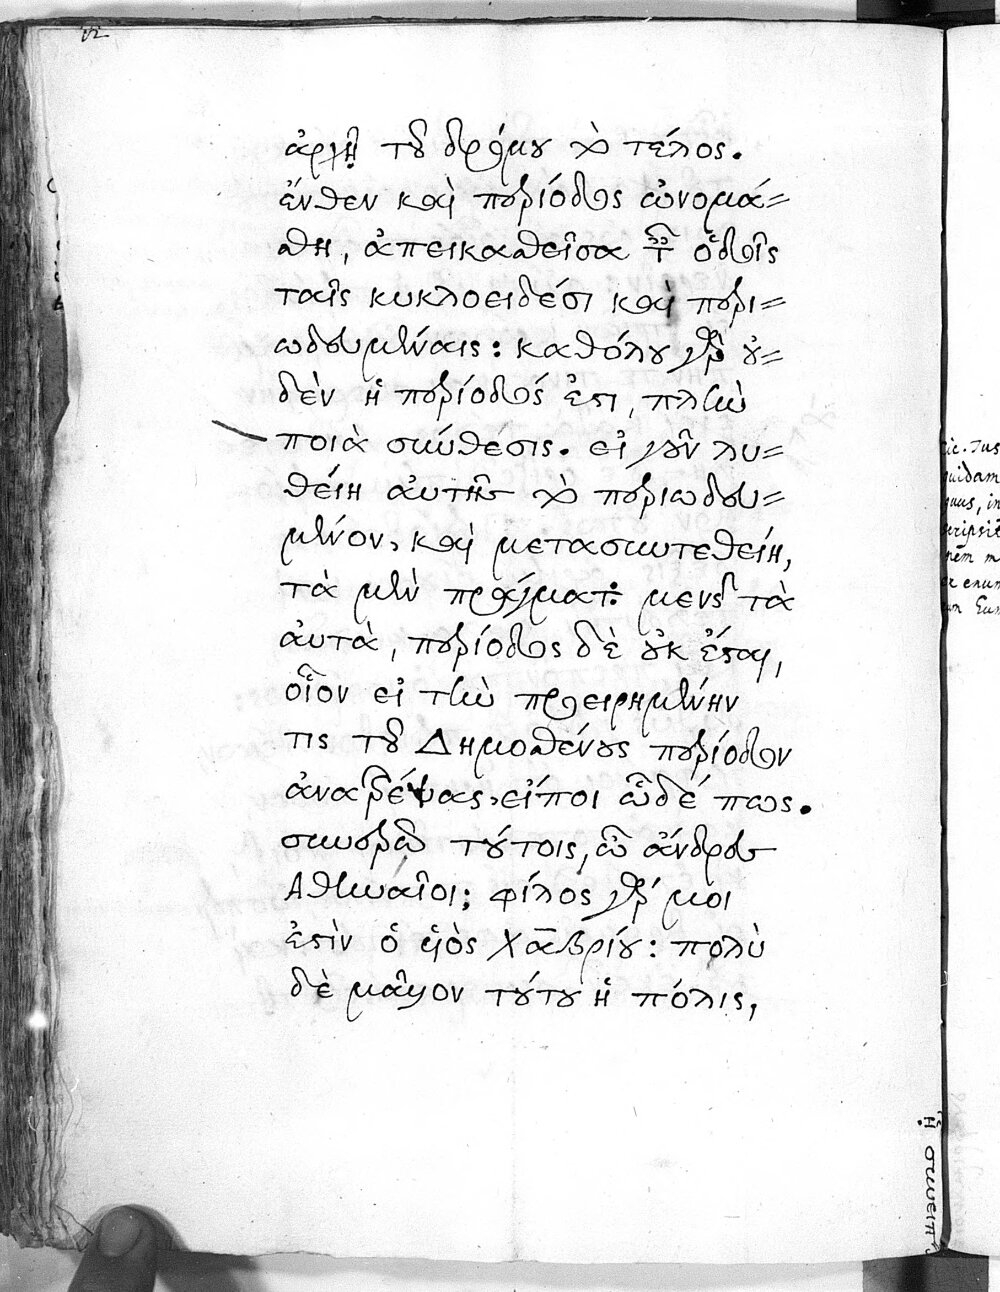 ἀρχὴ τοῦ δρόμου καὶ τέλος.
ἔνθεν καὶ περίοδος ὠνομά=
σθη, ἀπεικασθεῖσα ταῖς ὁδοῖς
ταῖς κυκλοειδέσι καὶ περι=
ωδευμέναις: καθόλου γὰρ οὐ=
δὲν ἡ περίοδός ἐστι, πλὴν
ποιὰ σύνθεσις. εἰ γοῦν λυ=
θείη αὐτῆς τὸ περιωδευ=
μένον, καὶ μετασυντεθείη,
τὰ μὲν πράγματα μένει τὰ
αὐτὰ, περίοδος δὲ οὐκ ἔσται,
οἷον εἰ τὴν προειρημένην
τις τοῦ Δημοσθένους περίοδον
ἀναστρέψας, εἴποι ὧδέ πως.
συνερῶ τούτοις, ὦ ἄνδρες
Ἀθηναῖοι; φίλος γάρ μοι
ἐστὶν ὁ υἱὸς Χαβρίου: πολὺ
δὲ μᾶλλον τούτου ἡ πόλις,